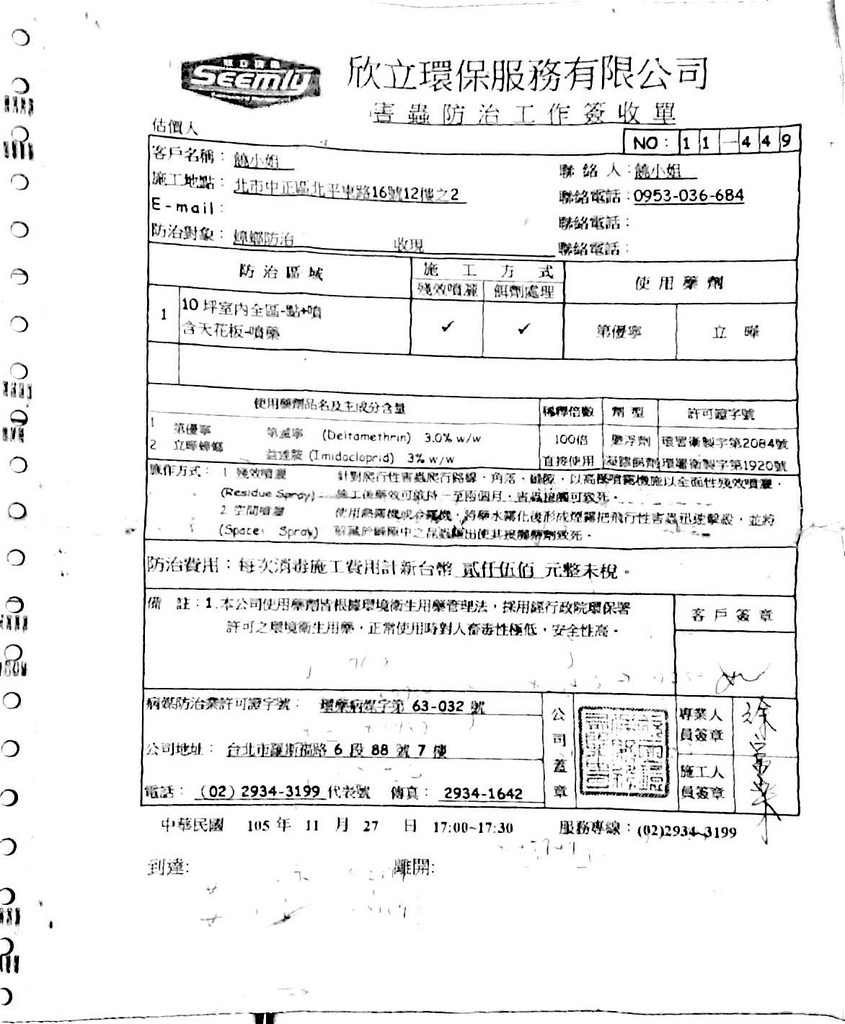 Seemly
欣立環保服務有限公司
害蟲防治工作簽收單
估價人
NO: 11-449
客戶名稱: 饒小姐
聯絡人: 饒小姐
施工地點: 北市中正區北平東路16號12樓之2
聯絡電話: 0953-036-684
E-mail:
聯絡電話:
防治對象: 蟑螂防治 收現
聯絡電話:
防治區域 施工方式 使用藥劑
殘效噴灑 餌劑處理
1 10坪室內全區-點+噴 ✓ ✓ 第優寧 立曄
含天花板-噴藥
使用藥劑品名及主成分含量 稀釋倍數 劑型 許可證字號
1 第優寧 第滅寧 (Deltamethrin) 3.0% w/w 100倍 膠浮劑 環署衛製字第2084號
2 立曄蟑螂 益達胺 (Imidacloprid) 3% w/w 直接使用 凝膠餌劑 環署衛製字第1920號
施作方式: 1 殘效噴灑 針對爬行性害蟲爬行路線、角落、縫隙,以高壓噴霧機施以全面性殘效噴灑,
(Residue Spray) 施工後藥效可維持一至兩個月,害蟲接觸可致死。
2 空間噴灑 使用熱霧機或冷霧機,將藥水霧化後形成煙霧把飛行性害蟲迅速擊殺,並將
(Space Spray) 躲藏於縫隙中之昆蟲驅出使其接觸藥劑致死。
防治費用:每次消毒施工費用計新台幣 貳仟伍佰 元整未稅。
備註:1.本公司使用藥劑皆根據環境衛生用藥管理法,採用經行政院環保署
許可之環境衛生用藥,正常使用時對人畜毒性極低,安全性高。
客戶簽章
病媒防治業許可證字號: 環藥病媒字第 63-032 號
公司地址: 台北市羅斯福路 6 段 88 號 7 樓
電話: (02) 2934-3199 代表號 傳真: 2934-1642
公司蓋章
專業人員簽章
施工人員簽章
中華民國 105 年 11 月 27 日 17:00~17:30 服務專線:(02)2934-3199
到達: 離開: